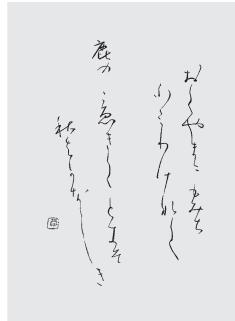 おくやまに もみち
ふみわけなく
鹿の こ恵きくときそ
秋はかなしき